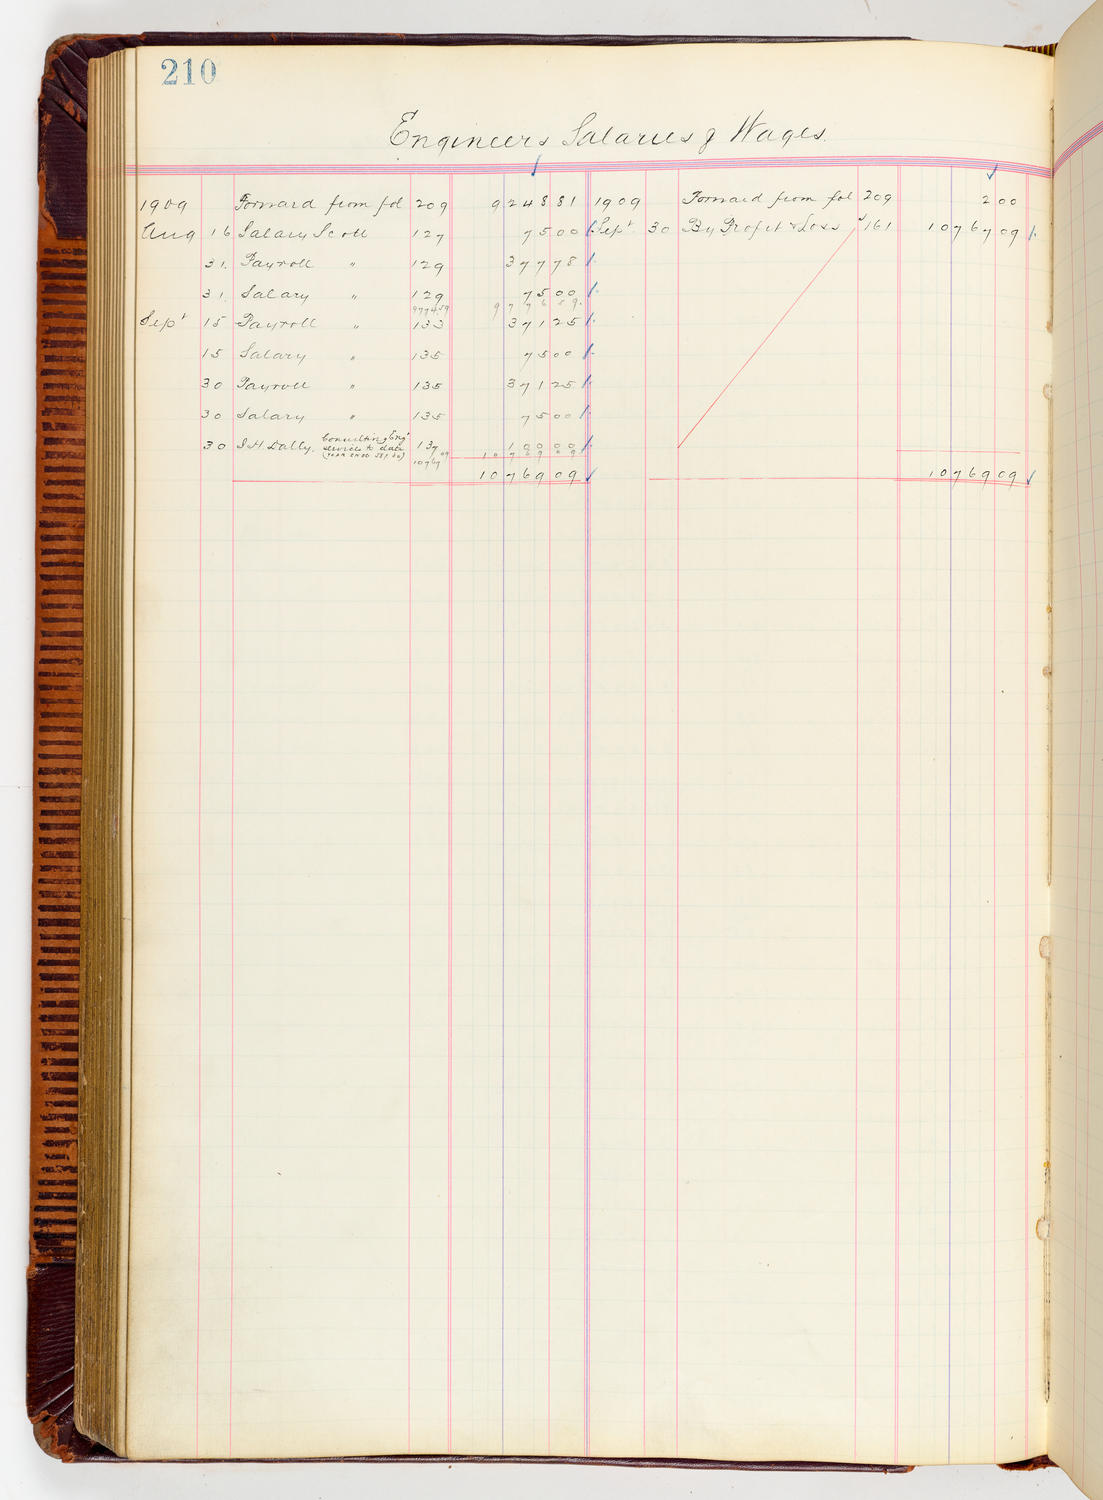 210
Engineers Salaries & Wages
1909 Forward from fol 209 9248 81
Aug 16 Salary Scott 127 75 00
31. Payroll " 129 377 78
31. Salary " 129 75 00
9774.59 9776 59.
Sept 15 Payroll " 133 371 25
15 Salary " 135 75 00
30 Payroll " 135 371 25
30 Salary " 135 75 00
30 Consulting Engr
Dally. services to date 137 100 00
10769 09 10769 09
10769 09
1909 Forward from fol 209 2 00
Sept 30 By Profit & Loss 161 10767 09
10769 09